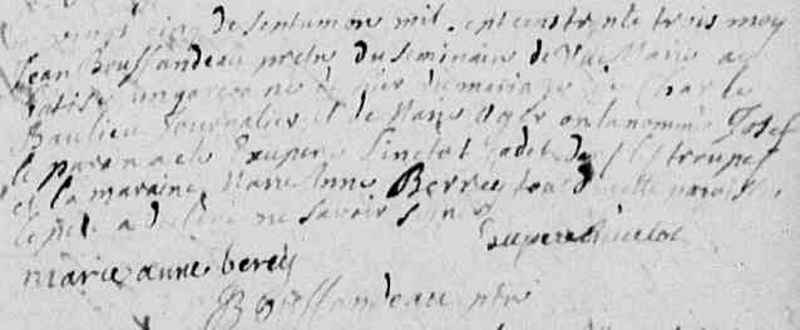 vingt cinq de septembre mil sept cens trente trois moy
Jean Boussandeau pretre du seminaire de ay
batisé un garcon né hier du mariage de Charle
Baulieu Journalier et de Marie Oger on la nommé Josef
le parain a eté Exupere cadet dans les troupes
et la maraine Marie Anne Berrey tous de cette paroisse,
le pere a declaré ne savoir signer
Exupere
marie anne berey
Boussandeau ptre